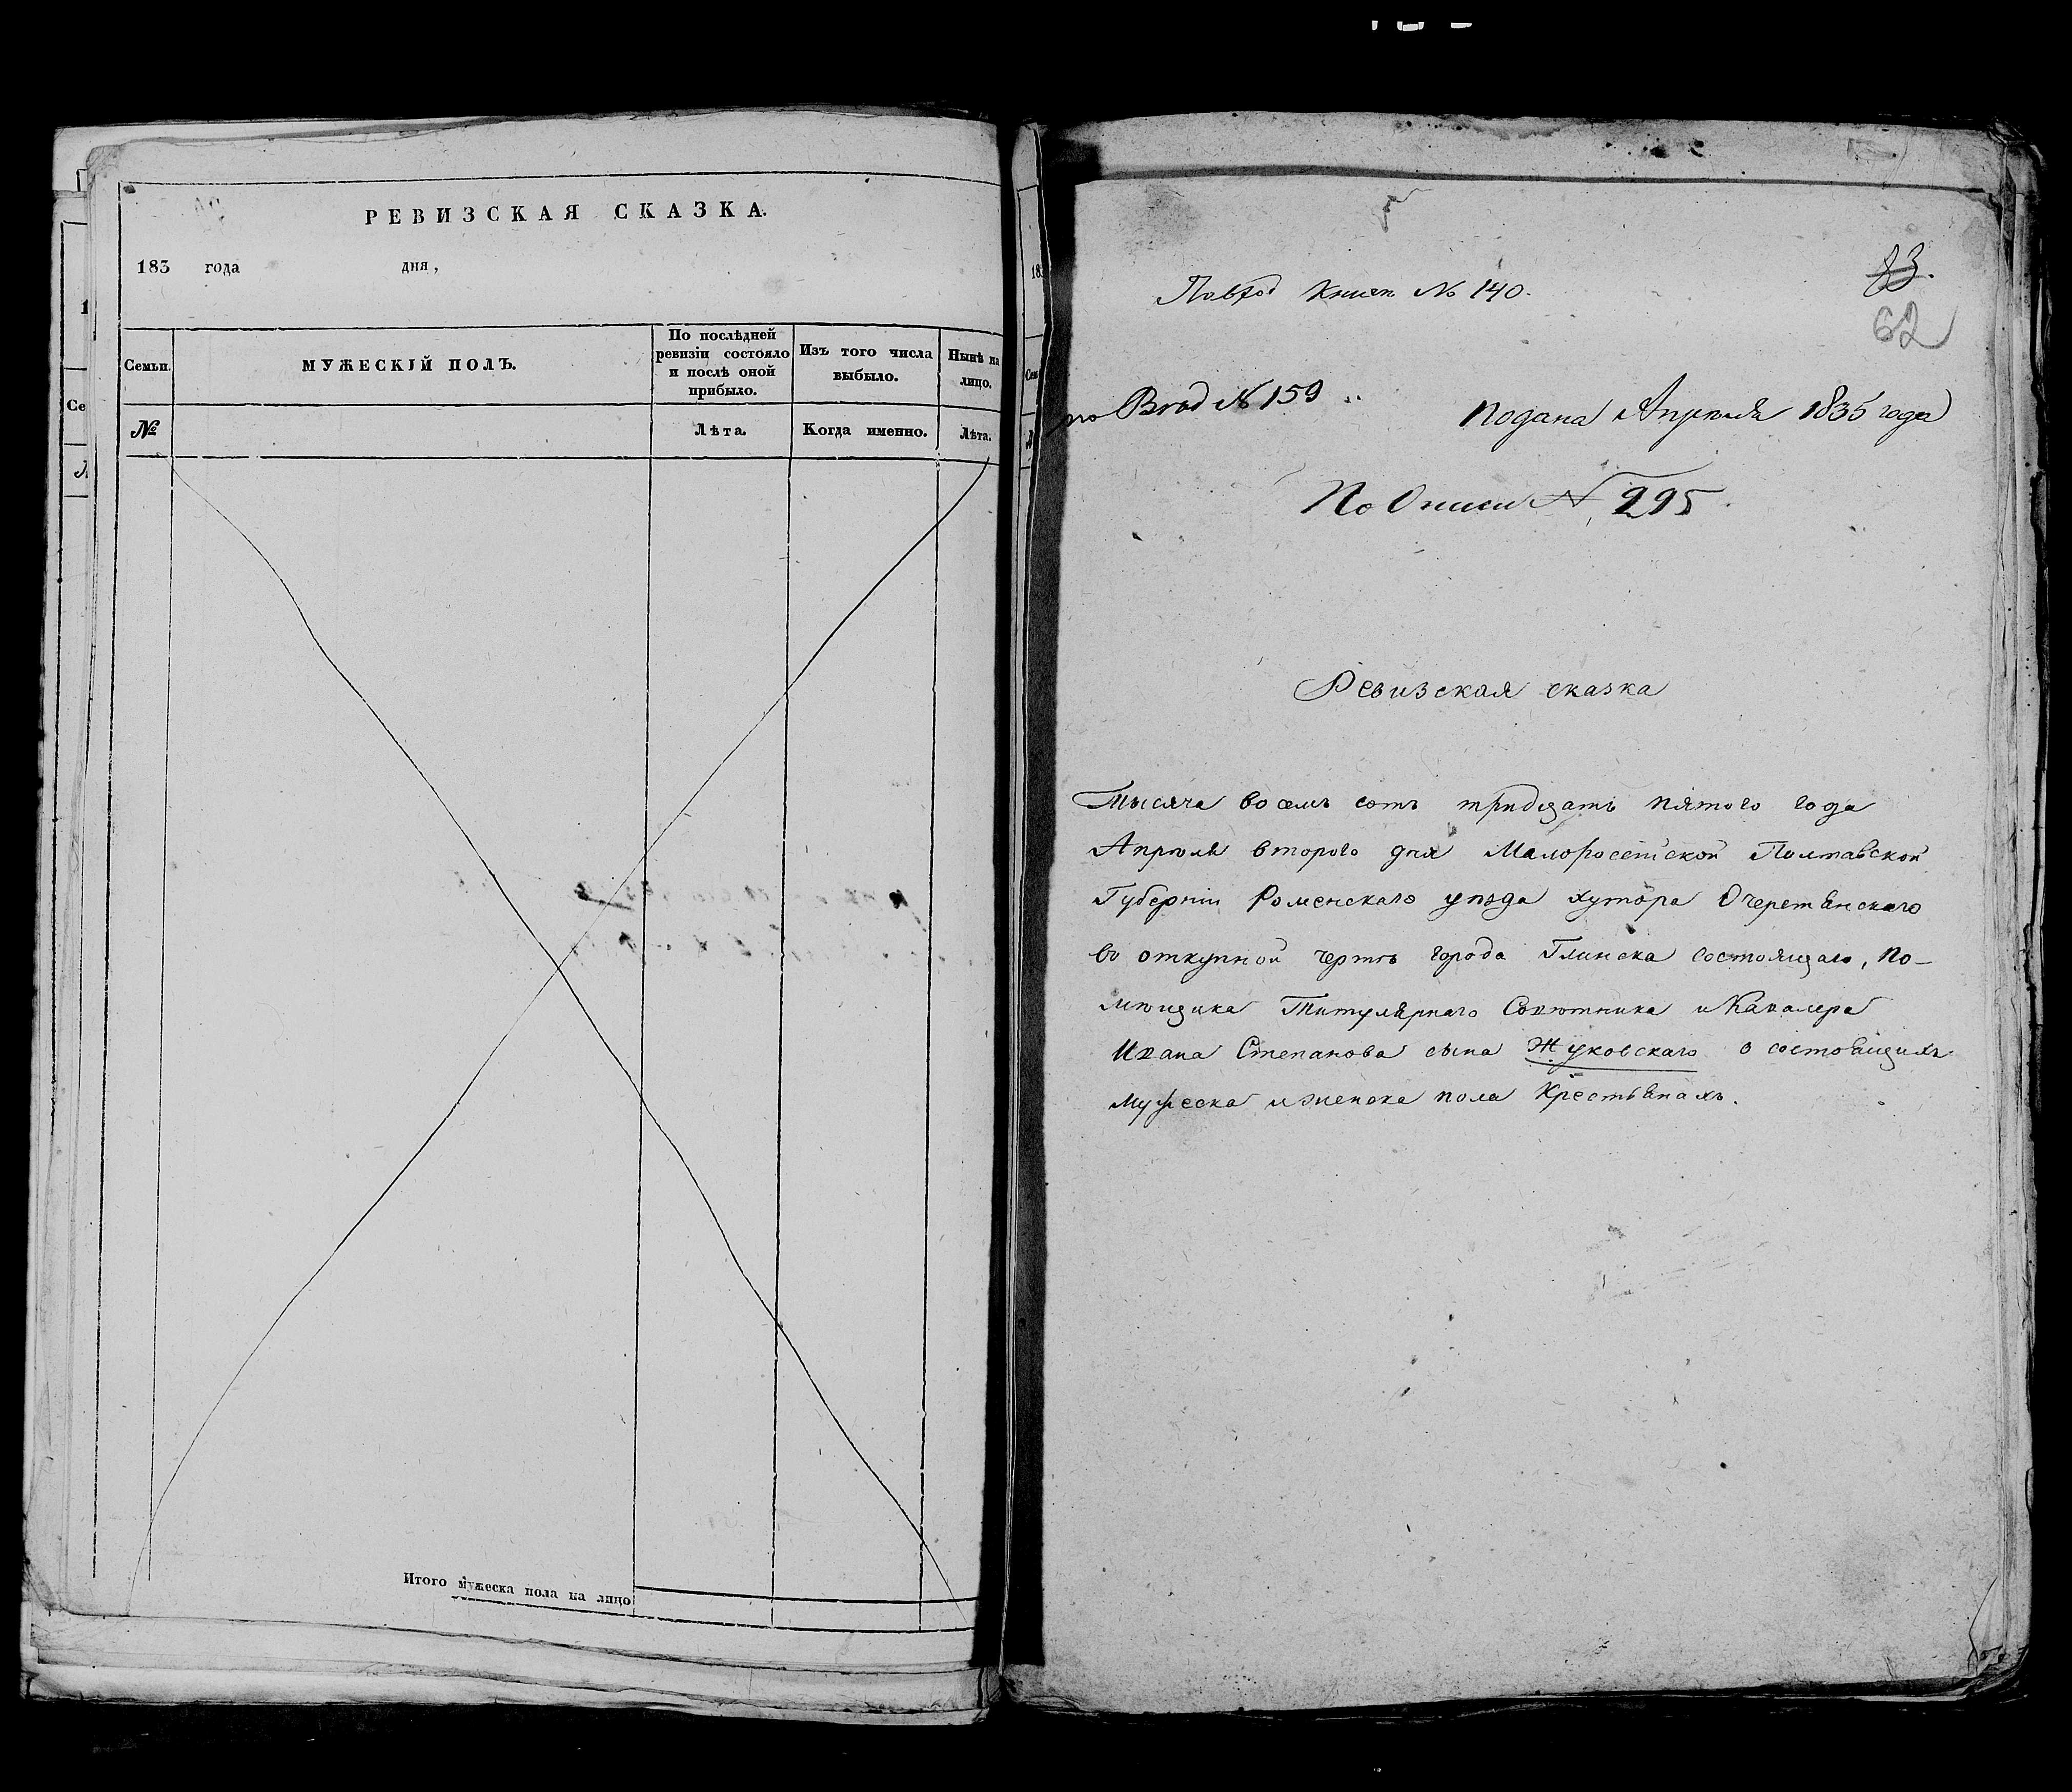 РЕВИЗСКАЯ СКАЗКА.
183 года дня,
Семьи.
МУЖЕСКІЙ ПОЛЪ.
По послѣдней ревизіи состояло и послѣ оной прибыло.
Изъ того числа выбыло.
Нынѣ на лицо.
№
Лѣта.
Когда именно.
Лѣта.
Итого мужеска пола на лицо
83.
62
Повход Книги № 140.
по Вход № 159
подана Апреля 1835 года
По Описи № 295
Ревизская сказка
Тысяча восемь сотъ тридцать пятого года
Апреля второго дня Малоросейской Полтавской
Губерніи Роменскаго уезда хутора Очеретянскаго
во откупной черте города Глинска состоящаго, по-
мещика Титулярнаго Советника и Кавалера
Ивана Степанова сына Жуковскаго о состоящихъ
мужеска и женска пола Крестьянахъ.